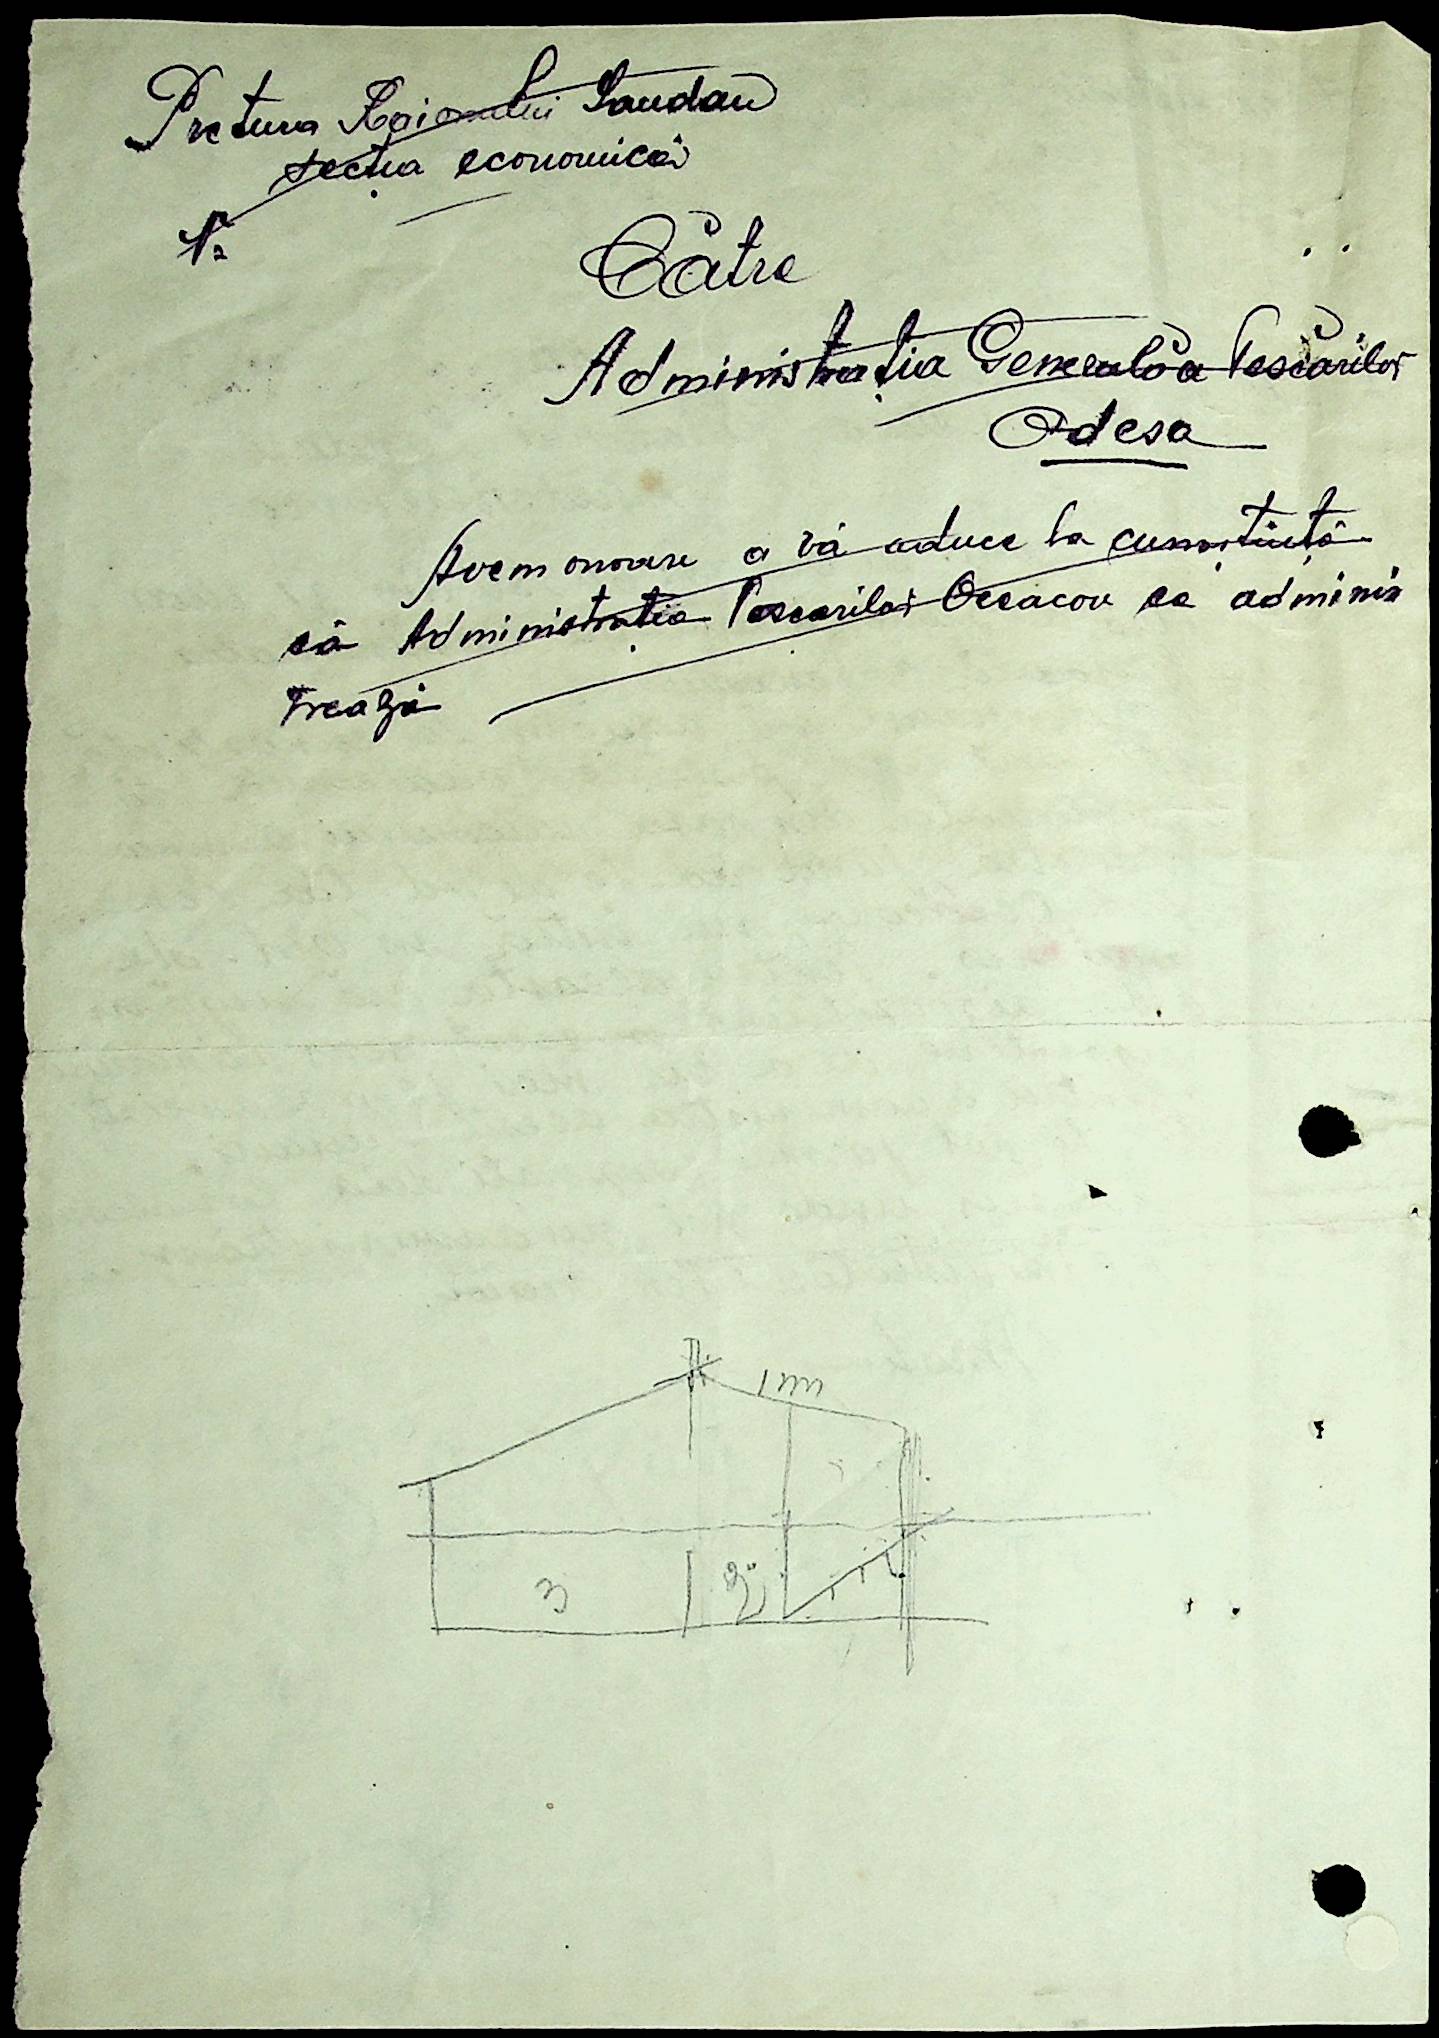 Pretura Raionului Landau
secția economică
Nr
Către
Administrația Generală a Pescăriilor
Odesa
Avem onoare a vă aduce la cunoștiință
că Administrația Pescariilor Oceacov se adminis
trează
1 m
3
2